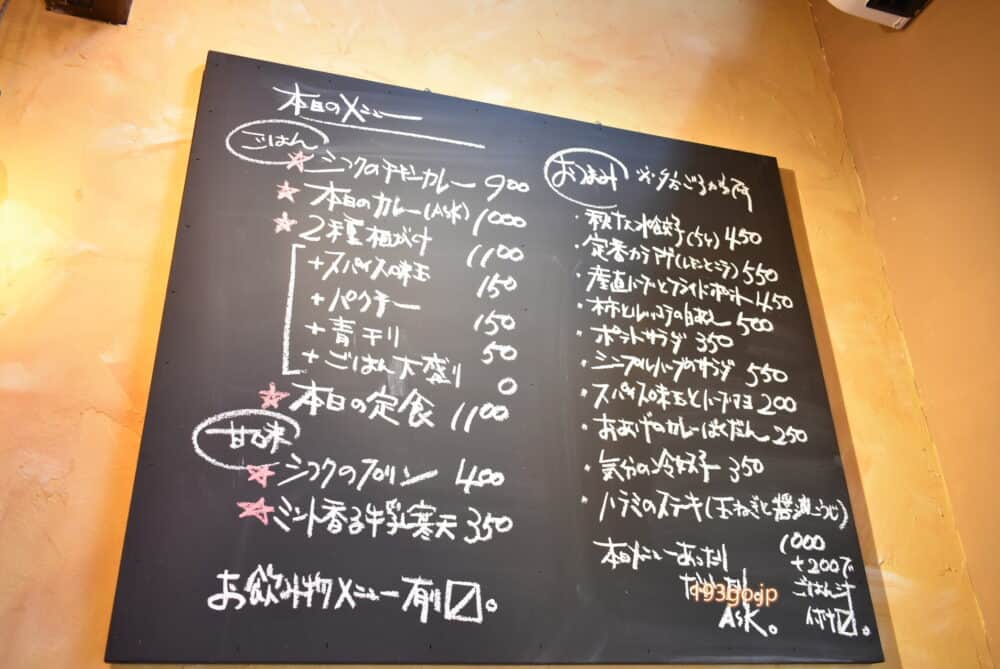 本日のメニュー
ごはん
シコクのチキンカレー 900
本日のカレー(ASK) 1000
2種相がけ 1100
+スパイス味玉 150
+パクチー 150
+青干リ 50
+ごはん大盛り 0
本日の定食 1100
甘味
シコクのプリン 400
ミント香る牛乳寒天 350
お飲み物メニュー有り〼。
おつまみ
水餃子(5ヶ) 450
定番カラアゲ(レモンとニラ) 550
産直ハーブとフライドポテト 450
500
ポテトサラダ 350
シンプルハーブのサラダ 550
スパイス味玉とハーブマヨ 200
おあげのカレーばくだん 250
気分の冷奴 350
ハラミのステーキ(玉ねぎと醤油こうじ)
1000
+200で
ごはん汁
付け〼。
本日メニューあったり
ASK。
193go.jp